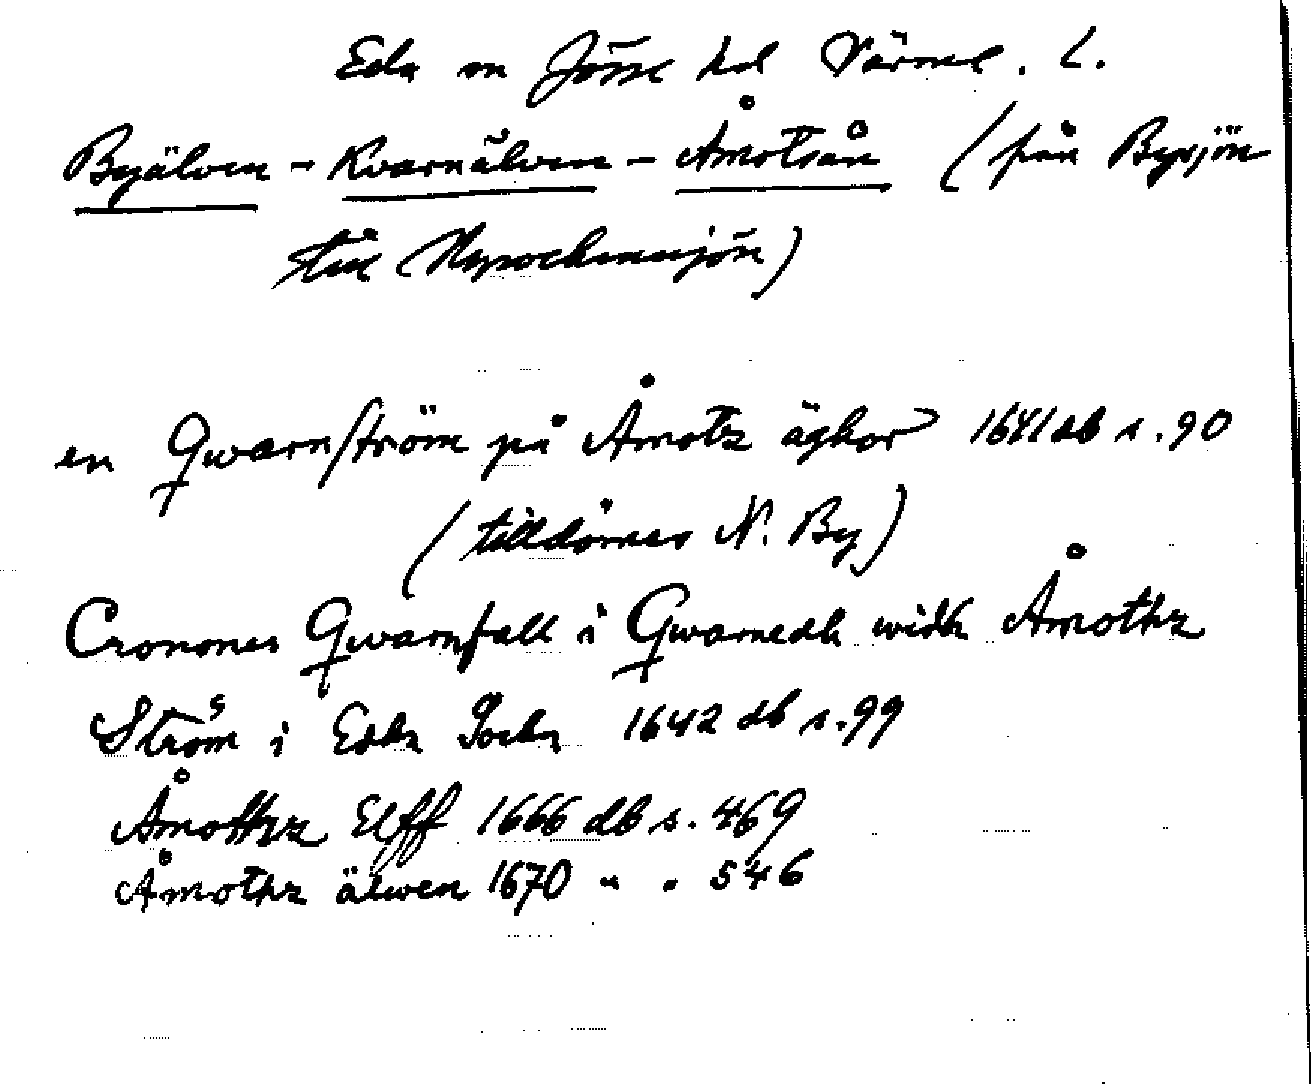 Eda sn Jösse hd Värml. l.
Byälven - Kvarnälven - Åmotsån (från Bysjön
till Nysockensjön)
en Qwarnström på Åmotz äghor 1641 db s. 90
(tilldömes N. By)
Cronones Qwarnfall i Qwarnedh widh Åmothz
Ström i Edha Sochn 1642 db s. 99
Åmothz Elff 1666 db s. 469
Åmothz älwen 1670 " " 546